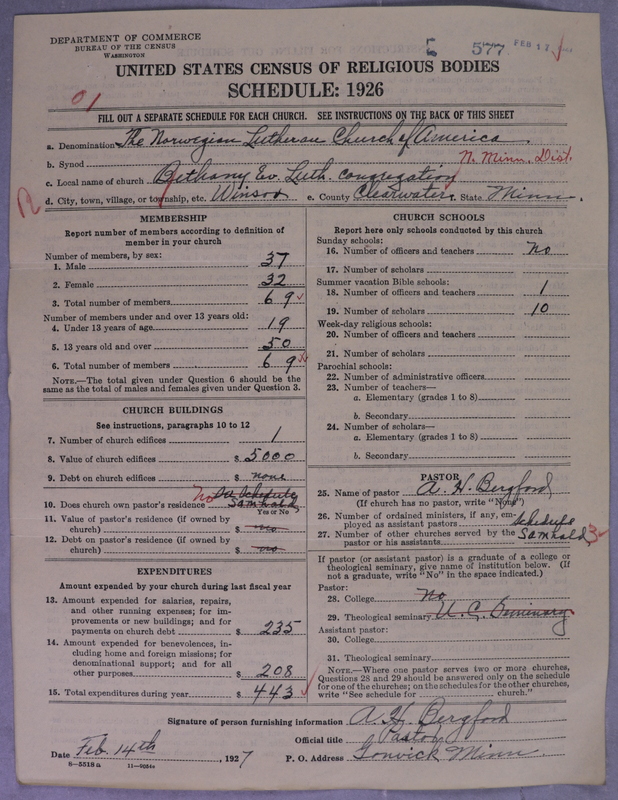 DEPARTMENT OF COMMERCE
BUREAU OF THE CENSUS
WASHINGTON
577 FEB 17
UNITED STATES CENSUS OF RELIGIOUS BODIES
SCHEDULE: 1926
01
FILL OUT A SEPARATE SCHEDULE FOR EACH CHURCH. SEE INSTRUCTIONS ON THE BACK OF THIS SHEET
a. Denomination The Norwegian Lutheran Church of America
b. Synod N. Minn. Dist.
c. Local name of church Bethany Ev. Luth. congregation
d. City, town, village, or township, etc. Winsor e. County Clearwater f. State Minn.
MEMBERSHIP
Report number of members according to definition of
member in your church
Number of members, by sex:
1. Male 37
2. Female 32
3. Total number of members 69
Number of members under and over 13 years old:
4. Under 13 years of age 19
5. 13 years old and over 50
6. Total number of members 69
NOTE.—The total given under Question 6 should be
same as the total of males and females given under Question 3.
CHURCH BUILDINGS
See instructions, paragraphs 10 to 12
7. Number of church edifices 1
8. Value of church edifices $ 5000
9. Debt on church edifices $ none
No See Schedule
10. Does church own pastor's residence Samhald
Yes or No
11. Value of pastor's residence (if owned by
church) $ no
12. Debt on pastor's residence (if owned by
church) $ no
EXPENDITURES
Amount expended by your church during last fiscal year
13. Amount expended for salaries, repairs,
and other running expenses; for im-
provements or new buildings; and for
payments on church debt $ 235
14. Amount expended for benevolences, in-
cluding home and foreign missions; for
denominational support; and for all
other purposes $ 208
15. Total expenditures during year $ 443
CHURCH SCHOOLS
Report here only schools conducted by this church
Sunday schools:
16. Number of officers and teachers no
17. Number of scholars
Summer vacation Bible schools:
18. Number of officers and teachers 1
19. Number of scholars 10
Week-day religious schools:
20. Number of officers and teachers
21. Number of scholars
Parochial schools:
22. Number of administrative officers
23. Number of teachers—
a. Elementary (grades 1 to 8)
b. Secondary
24. Number of scholars—
a. Elementary (grades 1 to 8)
b. Secondary
PASTOR
25. Name of pastor A. H. Bergford
(If church has no pastor, write "None")
26. Number of ordained ministers, if any, em-
ployed as assistant pastors Schedule
27. Number of other churches served by the Samhald 3
pastor or his assistants
If pastor (or assistant pastor) is a graduate of a college or
theological seminary, give name of institution below. (If
not a graduate, write "No" in the space indicated.)
Pastor:
28. College no
29. Theological seminary U. C. Seminary
Assistant pastor:
30. College
31. Theological seminary
NOTE.—Where one pastor serves two or more churches,
Questions 28 and 29 should be answered only on the schedule
for one of the churches; on the schedules for the other churches,
write "See schedule for church."
Signature of person furnishing information A. H. Bergford
Official title Pastor
Date Feb. 14th, 1927 P. O. Address Gonvick Minn.
8—5518 a 11—9054a